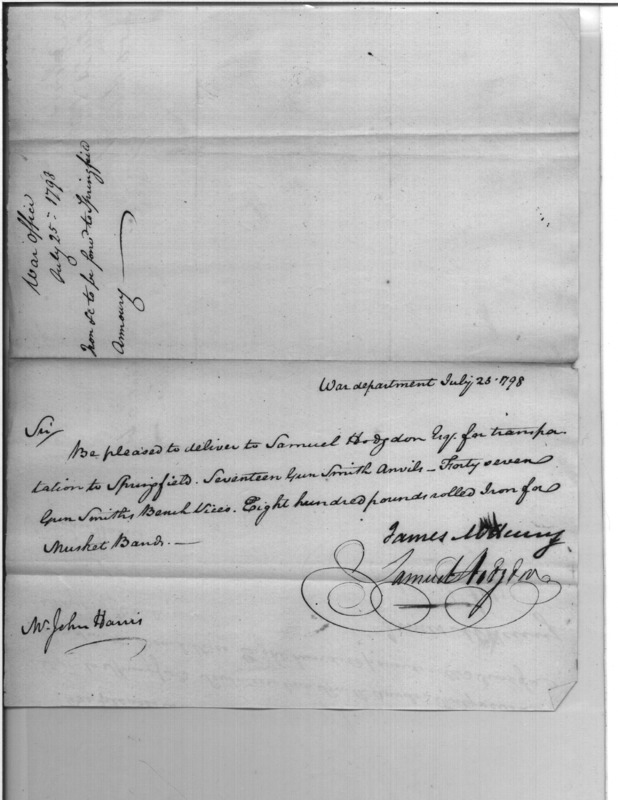 War Office
July 25 - 1798
Iron &c to be forw'd to Springfield
Armoury
War department July 25 - 1798
Sir
Be pleased to deliver to Samuel Hodgdon Esq. for transpor-
tation to Springfield. Seventeen Gun Smith Anvils - Forty seven
Gun Smiths Bench Vices. Eight hundred pounds rolled Iron for
Musket Bands. -
James McHenry
Samuel Hodgdon
Mr. John Harris